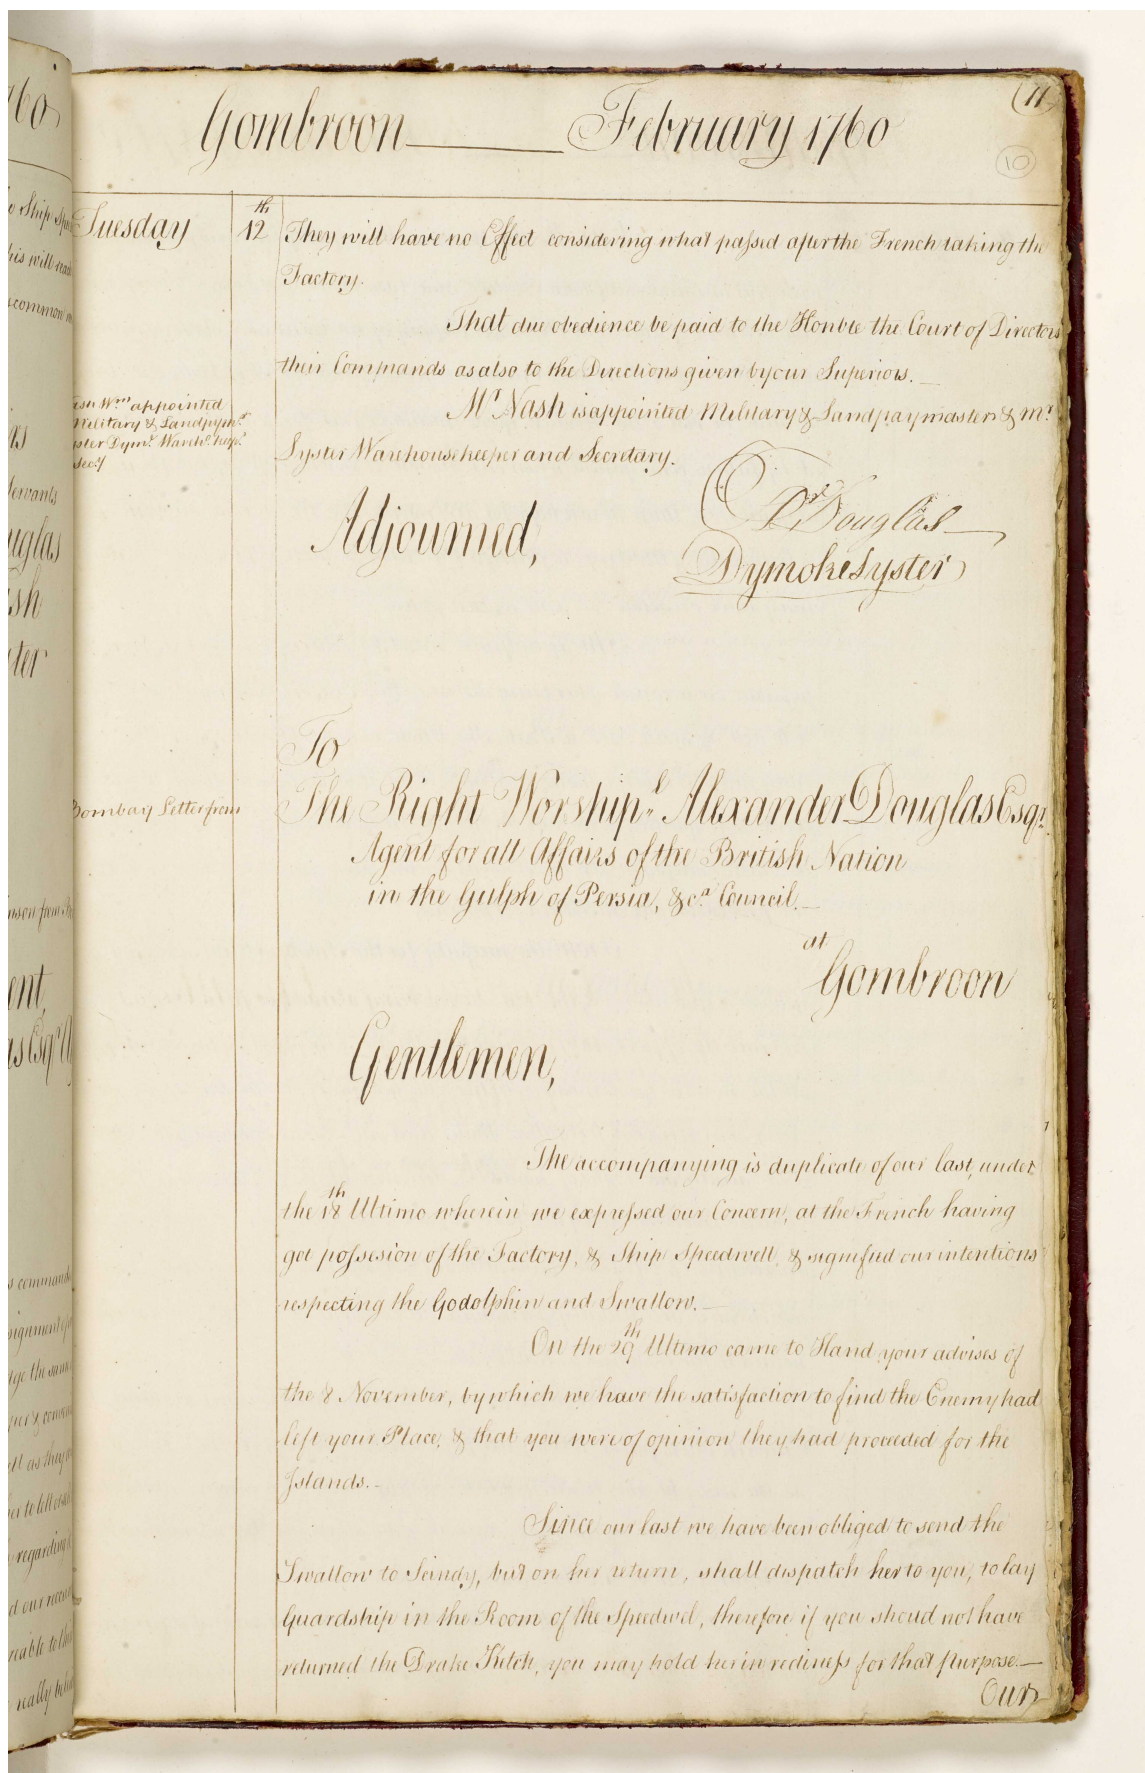 (11
Gombroon February 1760
10
Tuesday 12th They will have no Effect considering what passed after the French taking the
Factory.
That due obedience be paid to the Honble the Court of Directors
their Commands as also to the Directions given by our Superiors.
appointed
Military & Landpaymr
Mr Nash is appointed Military & Landpaymaster & Mr
Lyster Dymr Warehokeepr
Secry
Lyster Warehousekeeper and Secretary.
Adjourned,
Douglas
Dymoke Lyster
To
Bombay Letter from
The Right Worshipl Alexander Douglas Esqr
Agent for all Affairs of the British Nation
in the Gulph of Persia, &ca Council.
at
Gombroon
Gentlemen,
The accompanying is duplicate of our last, under
the 18th Ultimo wherein we expressed our Concern, at the French having
got possesion of the Factory, & Ship Speedwell, & signified our intentions
respecting the Godolphin and Swallow.
On the 29th Ultimo came to Hand your advises of
the 8 November, by which we have the satisfaction to find the Enemy had
left your Place, & that you were of opinion they had proceeded for the
Islands.
Since our last we have been obliged to send the
Swallow to Scindy, but on her return, shall dispatch her to you, to lay
Guardship in the Room of the Speedwel, therefore if you should not have
returned the Drake Ketch, you may hold her in rediness for that purpose.
Our